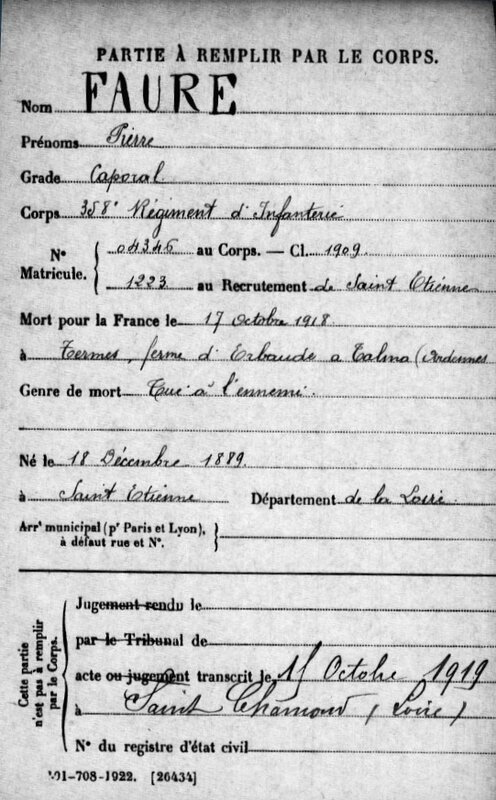 PARTIE À REMPLIR PAR LE CORPS.
Nom FAURE
Prénoms Pierre
Grade Caporal
Corps 358e Régiment d'Infanterie
Nº Matricule. { 04346 au Corps. — Cl. 1909.
1223 au Recrutement de Saint Etienne
Mort pour la France le 17 Octobre 1918
à Termes, ferme d'Erbaude a Talma (Ardennes
Genre de mort Tué à l'ennemi.
Né le 18 Décembre 1889.
à Saint Etienne Département de la Loire.
Arrt municipal (pr Paris et Lyon), à défaut rue et Nº. }
Cette partie n'est pas à remplir par le Corps.
Jugement rendu le
par le Tribunal de
acte ou jugement transcrit le 15 Octobre 1919
à Saint Chamond (Loire)
Nº du registre d'état civil
-708-1922. [26434]